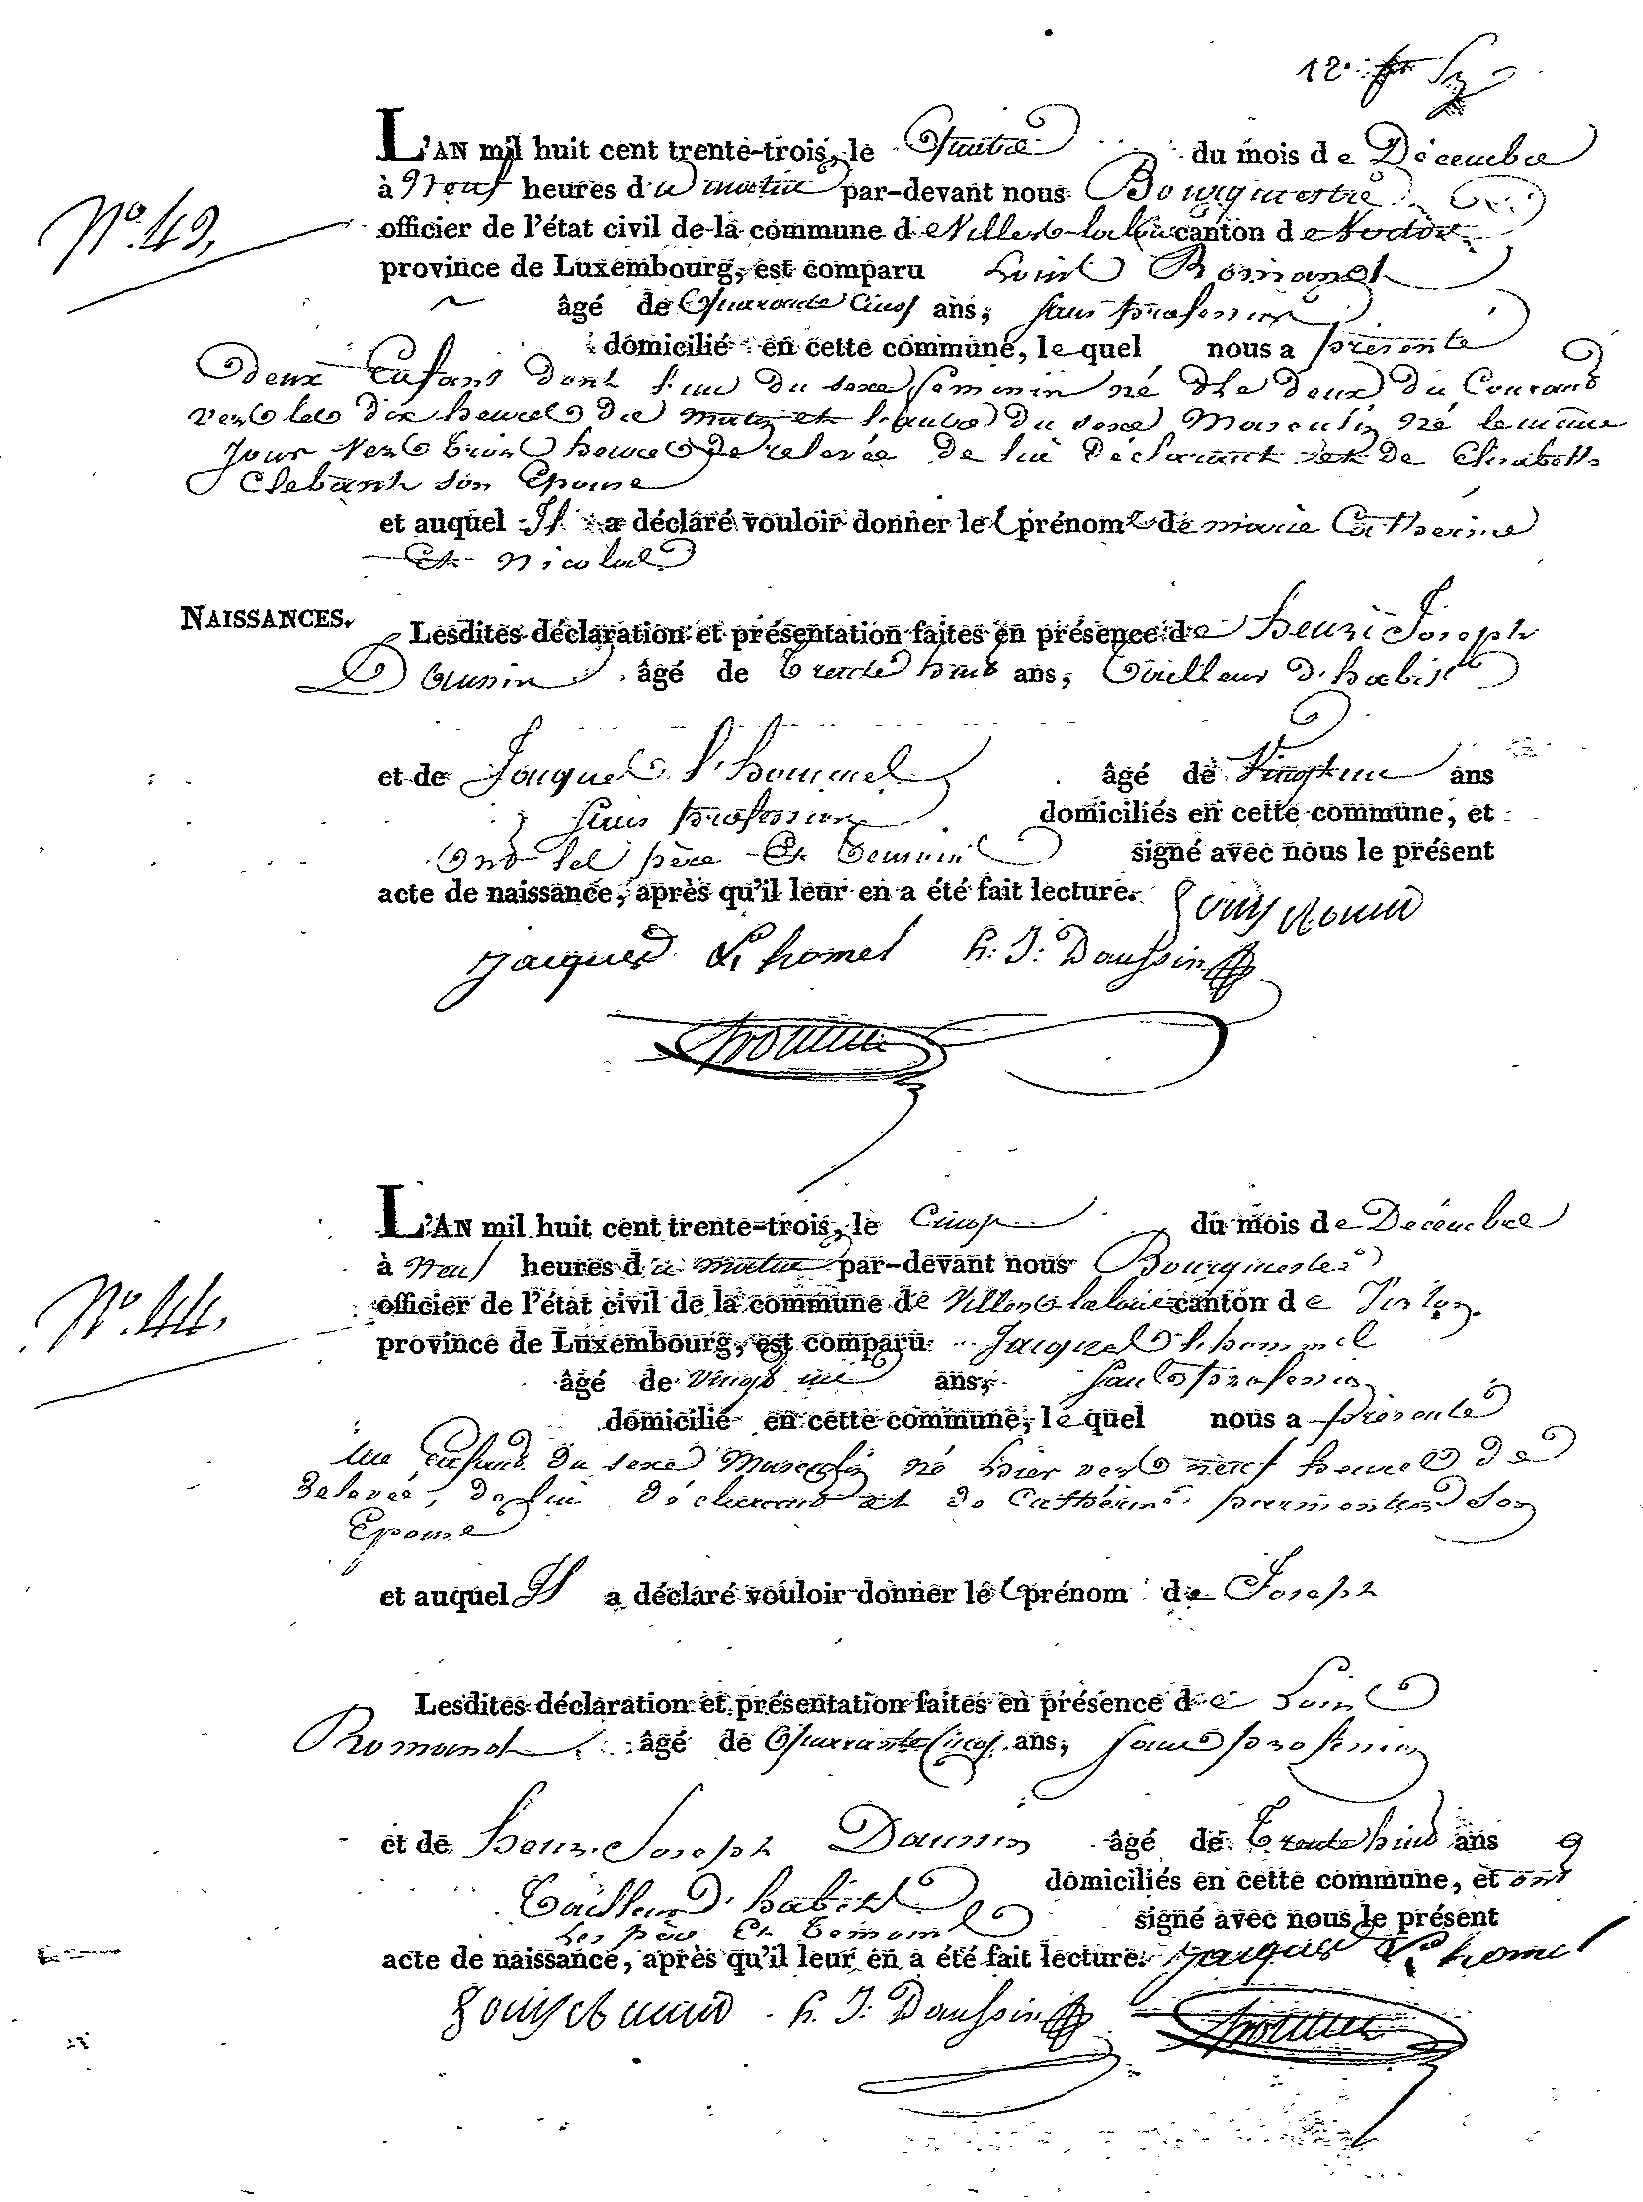 12.
L'AN mil huit cent trente-trois, le Quatre du mois de Décembre
à Neuf heures du matin par-devant nous Bourgmestre
N.º 43,
officier de l'état civil de la commune de Villers-la loue canton de
province de Luxembourg, est comparu Louis Romanet
âgé de Quarante Cinq ans, sans profession
domicilié en cette commune, lequel nous a présenté
deux Enfans dont l'un du sexe feminin né le deux du Courant
vers les dix heures du matin et l'autre du sexe Masculin né le même
jour vers trois heures de relevée de lui déclarant et de Elisabeth
son Epouse
et auquel Il a déclaré vouloir donner les prénoms de marie Catherine
Et Nicolas
NAISSANCES.
Lesdites déclaration et présentation faites en présence de henri Joseph
Daussin âgé de trente huit ans, Tailleur d'habits
et de Jacques L'hommel âgé de Vingt un ans
sans profession domiciliés en cette commune, et
Ont les père Et temoins signé avec nous le présent
acte de naissance, après qu'il leur en a été fait lecture.
jacques L homel h: J: Daussin
L'AN mil huit cent trente-trois, le Cinq du mois de Décembre
à Neuf heures du matin par-devant nous Bourgmestre
N.º 44.
officier de l'état civil de la commune de Villers-la loue canton de Virton
province de Luxembourg, est comparu Jacques L'hommel
âgé de vingt un ans, sans profession
domicilié en cette commune, lequel nous a présenté
un Enfant du sexe Masculin né hier vers neuf heures de
relevée, de lui déclarant et de Catherine parmentier son
Epouse
et auquel Il a déclaré vouloir donner le prénom de Joseph
Lesdites déclaration et présentation faites en présence de Louis
Romanet âgé de Quarante Cinq ans, sans profession
et de henri Joseph Daussin âgé de Trente huit ans
Tailleur d'habits domiciliés en cette commune, et ont
Les père Et temoins signé avec nous le présent
acte de naissance, après qu'il leur en a été fait lecture. jacques L homel
h. J: Daussin